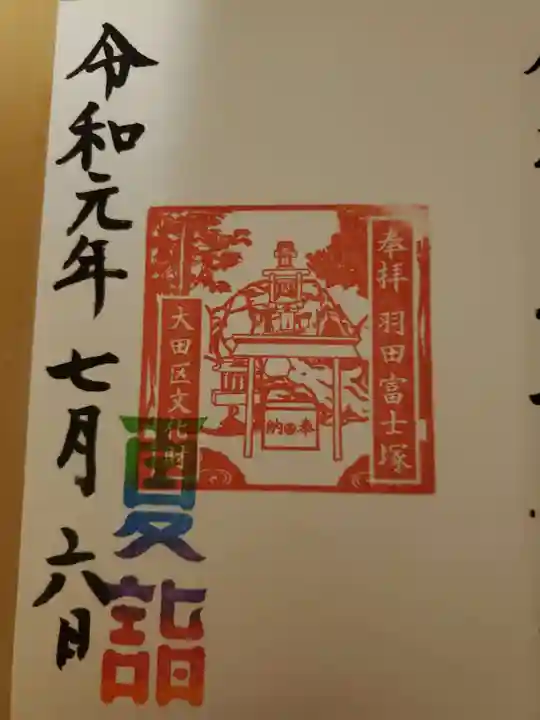 奉拝 羽田富士塚
奉納
大田区文化財
夏詣
令和元年七月六日